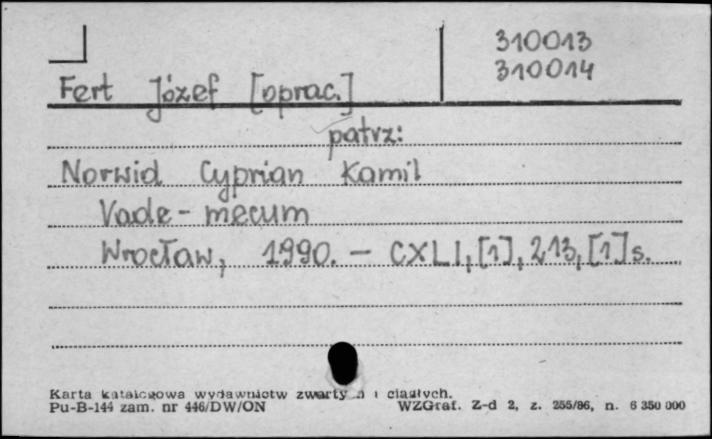 310013
310014
Fert Józef [oprac.]
patrz:
Norwid Cyprian Kamil
Vade-mecum
Wrocław, 1990. - CXLI, [1], 213, [1] s.
Karta katalogowa wydawnictw zwartych i ciągłych.
Pu-B-144 zam. nr 446/DW/ON WZGraf. Z-d 2, z. 255/86, n. 6 350 000